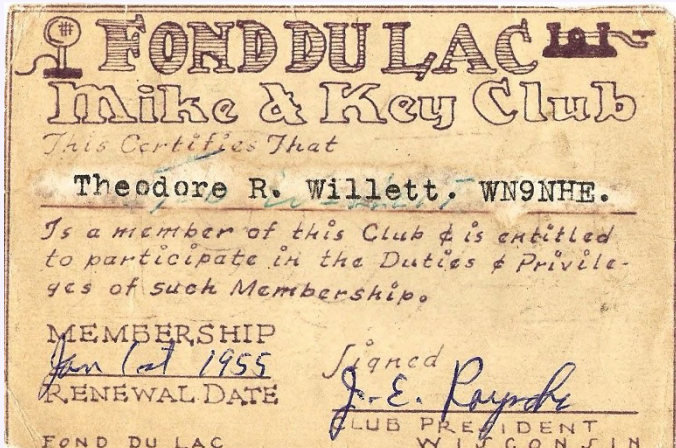 FOND DU LAC
Mike & Key Club
This Certifies That
Theodore R. Willett. WN9NHE.
Is a member of this Club & is entitled
to participate in the Duties & Privile-
ges of such Membership.
MEMBERSHIP
Jan 1st 1955
RENEWAL DATE
Signed
J. E.
CLUB PRESIDENT
FOND DU LAC WISCONSIN